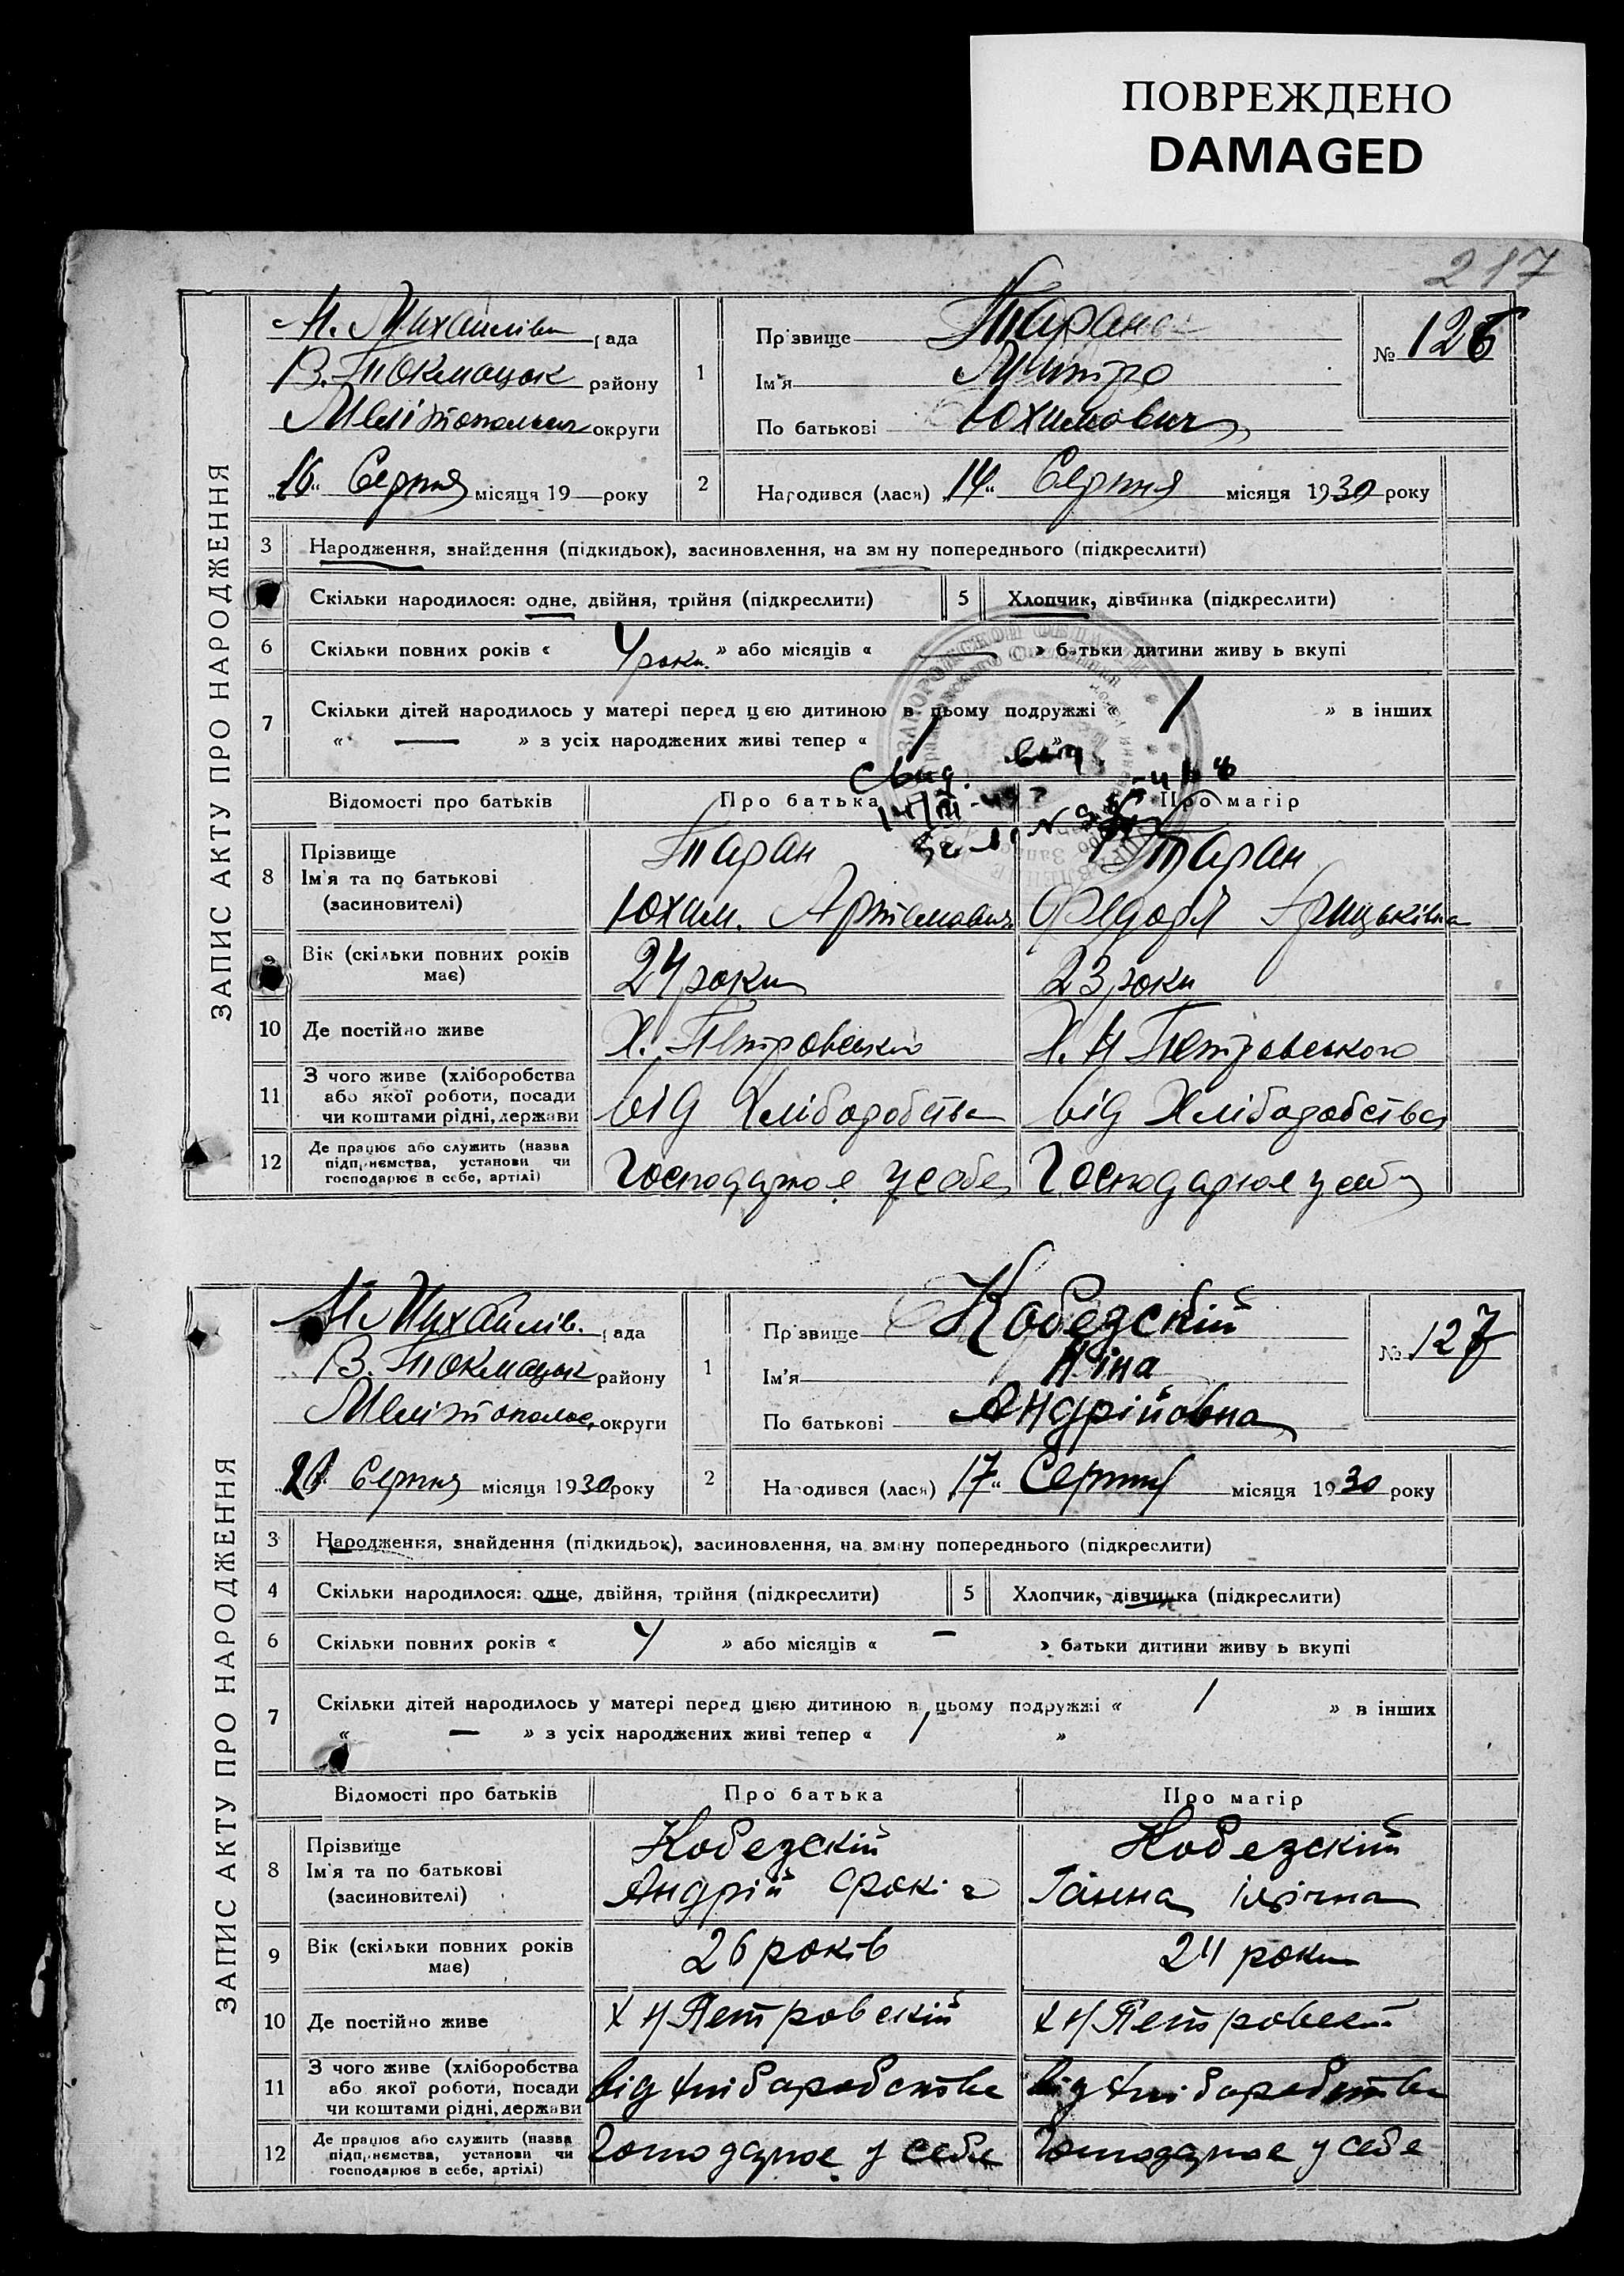 ПОВРЕЖДЕНО
DAMAGED
217
ЗАПИС АКТУ ПРО НАРОДЖЕННЯ
М. Михайлівк рада
В. Токмацьк району
Мелітопольськ округи
„16“ Серпня місяця 19 — року
1
Прізвище Таран
Ім'я Дмитро
По батькові Юхимович
№ 126
2
Народився (лася) „14“ Серпня місяця 1930 року
3 Народження, знайдення (підкидьох), засиновлення, на зміну попереднього (підкреслити)
Скільки народилося: одне, двійня, трійня (підкреслити) 5 Хлопчик, дівчинка (підкреслити)
6 Скільки повних років « 4 роки » або місяців « — » батьки дитини живуть вкупі
7 Скільки дітей народилось у матері перед цією дитиною в цьому подружжі « 1 » в інших
« — » з усіх народжених живі тепер « 1 »
Свид. выд.
Відомості про батьків Про батька Про матір
8 Прізвище Таран Таран
Ім'я та по батькові Юхим. Артемович Федора Грицьківна
(засиновителі)
9 Вік (скільки повних років має) 24 роки 23 роки
10 Де постійно живе Х. Петровський Х. Н Петровського
11 З чого живе (хліборобства або якої роботи, посади чи коштами рідні, держави від Хліборобства від Хліборобства
12 Де працює або служить (назва підприємства, установи чи господарює в себе, артілі) Господарює у себе Господарює у себе
ЗАПИС АКТУ ПРО НАРОДЖЕННЯ
М. Михайлів. рада
В. Токмацьк району
Мелітопольс. округи
Серпня місяця 1930 року
1
Прізвище Кобезскій
Ім'я Ніна
По батькові Андрійовна
№ 127
2
Народився (лася) 17“ Серпня місяця 1930 року
3 Народження, знайдення (підкидьок), засиновлення, на зміну попереднього (підкреслити)
4 Скільки народилося: одне, двійня, трійня (підкреслити) 5 Хлопчик, дівчинка (підкреслити)
6 Скільки повних років « 4 » або місяців « — » батьки дитини живуть вкупі
7 Скільки дітей народилось у матері перед цією дитиною в цьому подружжі « 1 » в інших
« — » з усіх народжених живі тепер « 1 »
Відомості про батьків Про батька Про матір
8 Прізвище Кобезскій Кобезскій
Ім'я та по батькові Андрій Ганна Ілвічна
(засиновителі)
9 Вік (скільки повних років має) 26 років 24 роки
10 Де постійно живе х Н Петровскій х Н Петровскій
11 З чого живе (хліборобства або якої роботи, посади чи коштами рідні, держави від хліборобства від хліборобства
12 Де працює або служить (назва підприємства, установи чи господарює в себе, артілі) Господарює у себе Господарює у себе